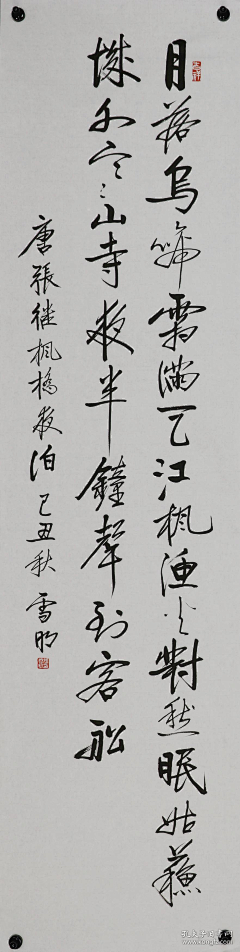 月落烏啼霜滿天江楓漁火對愁眠姑蘇
城外寒山寺夜半鐘聲到客船
唐張继楓橋夜泊己丑秋雪明